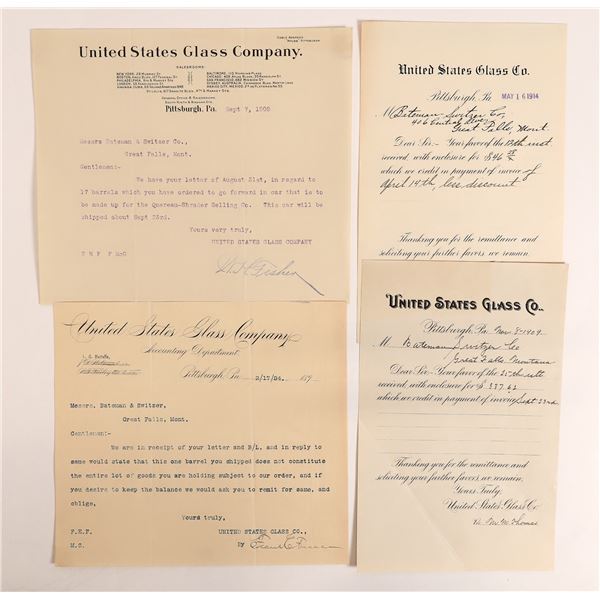 CABLE ADDRESS
United States Glass Company.
SALESROOMS:
General Office & Salesrooms
South Ninth & Bingham Sts.
Pittsburgh, Pa. Sept 7, 1909
Messrs Bateman & Switzer Co.,
Great Falls, Mont.
Gentlemen:-
We have your letter of August 31st, in regard to
17 barrels which you have ordered to go forward in car that is to
be made up for the Quereau-Shrader Selling Co. This car will be
shipped about Sept 23rd.
Yours very truly,
UNITED STATES GLASS COMPANY
W H F F McG
W H Fisher
United States Glass Co.
Pittsburgh, Pa MAY 16 1904
M Bateman-Switzer Co,
406 Central Ave,
Great Falls, Mont.
Dear Sir:- Your favor of the 12th inst
received, with enclosure for $46
which we credit in payment of invoice of
April 14th, less discount
Thanking you for the remittance and
soliciting your further favors, we remain.
United States Glass Company
Accounting Department.
Pittsburgh, Pa. 189
Messrs. Bateman & Switzer,
Great Falls, Mont.
Gentlemen:-
We are in receipt of your letter and B/L, and in reply to
same would state that this one barrel you shipped does not constitute
the entire lot of goods you are holding subject to our order, and if
you desire to keep the balance we would ask you to remit for same, and
oblige,
Yours truly,
F.E.F. UNITED STATES GLASS CO.,
M.C. By
UNITED STATES GLASS CO.,
Pittsburgh, Pa. Nov 8-1909
M Bateman Switzer Co
Great Falls Montana
Dear Sir: Your favor of the 25th ult
received, with enclosure for $ 337.62
which we credit in payment of invoice Sept 22nd
Thanking you for the remittance and
soliciting your further favors, we remain,
Yours Truly,
United States Glass Co
Thomas